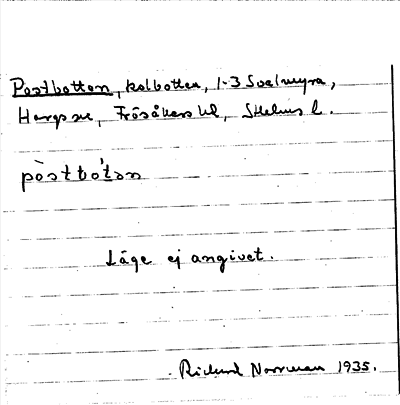 Postbotten, kolbotten, 1-3 Svelmyra,
Hargs sn, Frösåkers hd, Sthlms l.
pòstbótən
Läge ej angivet.
Rickard Norrman 1935.